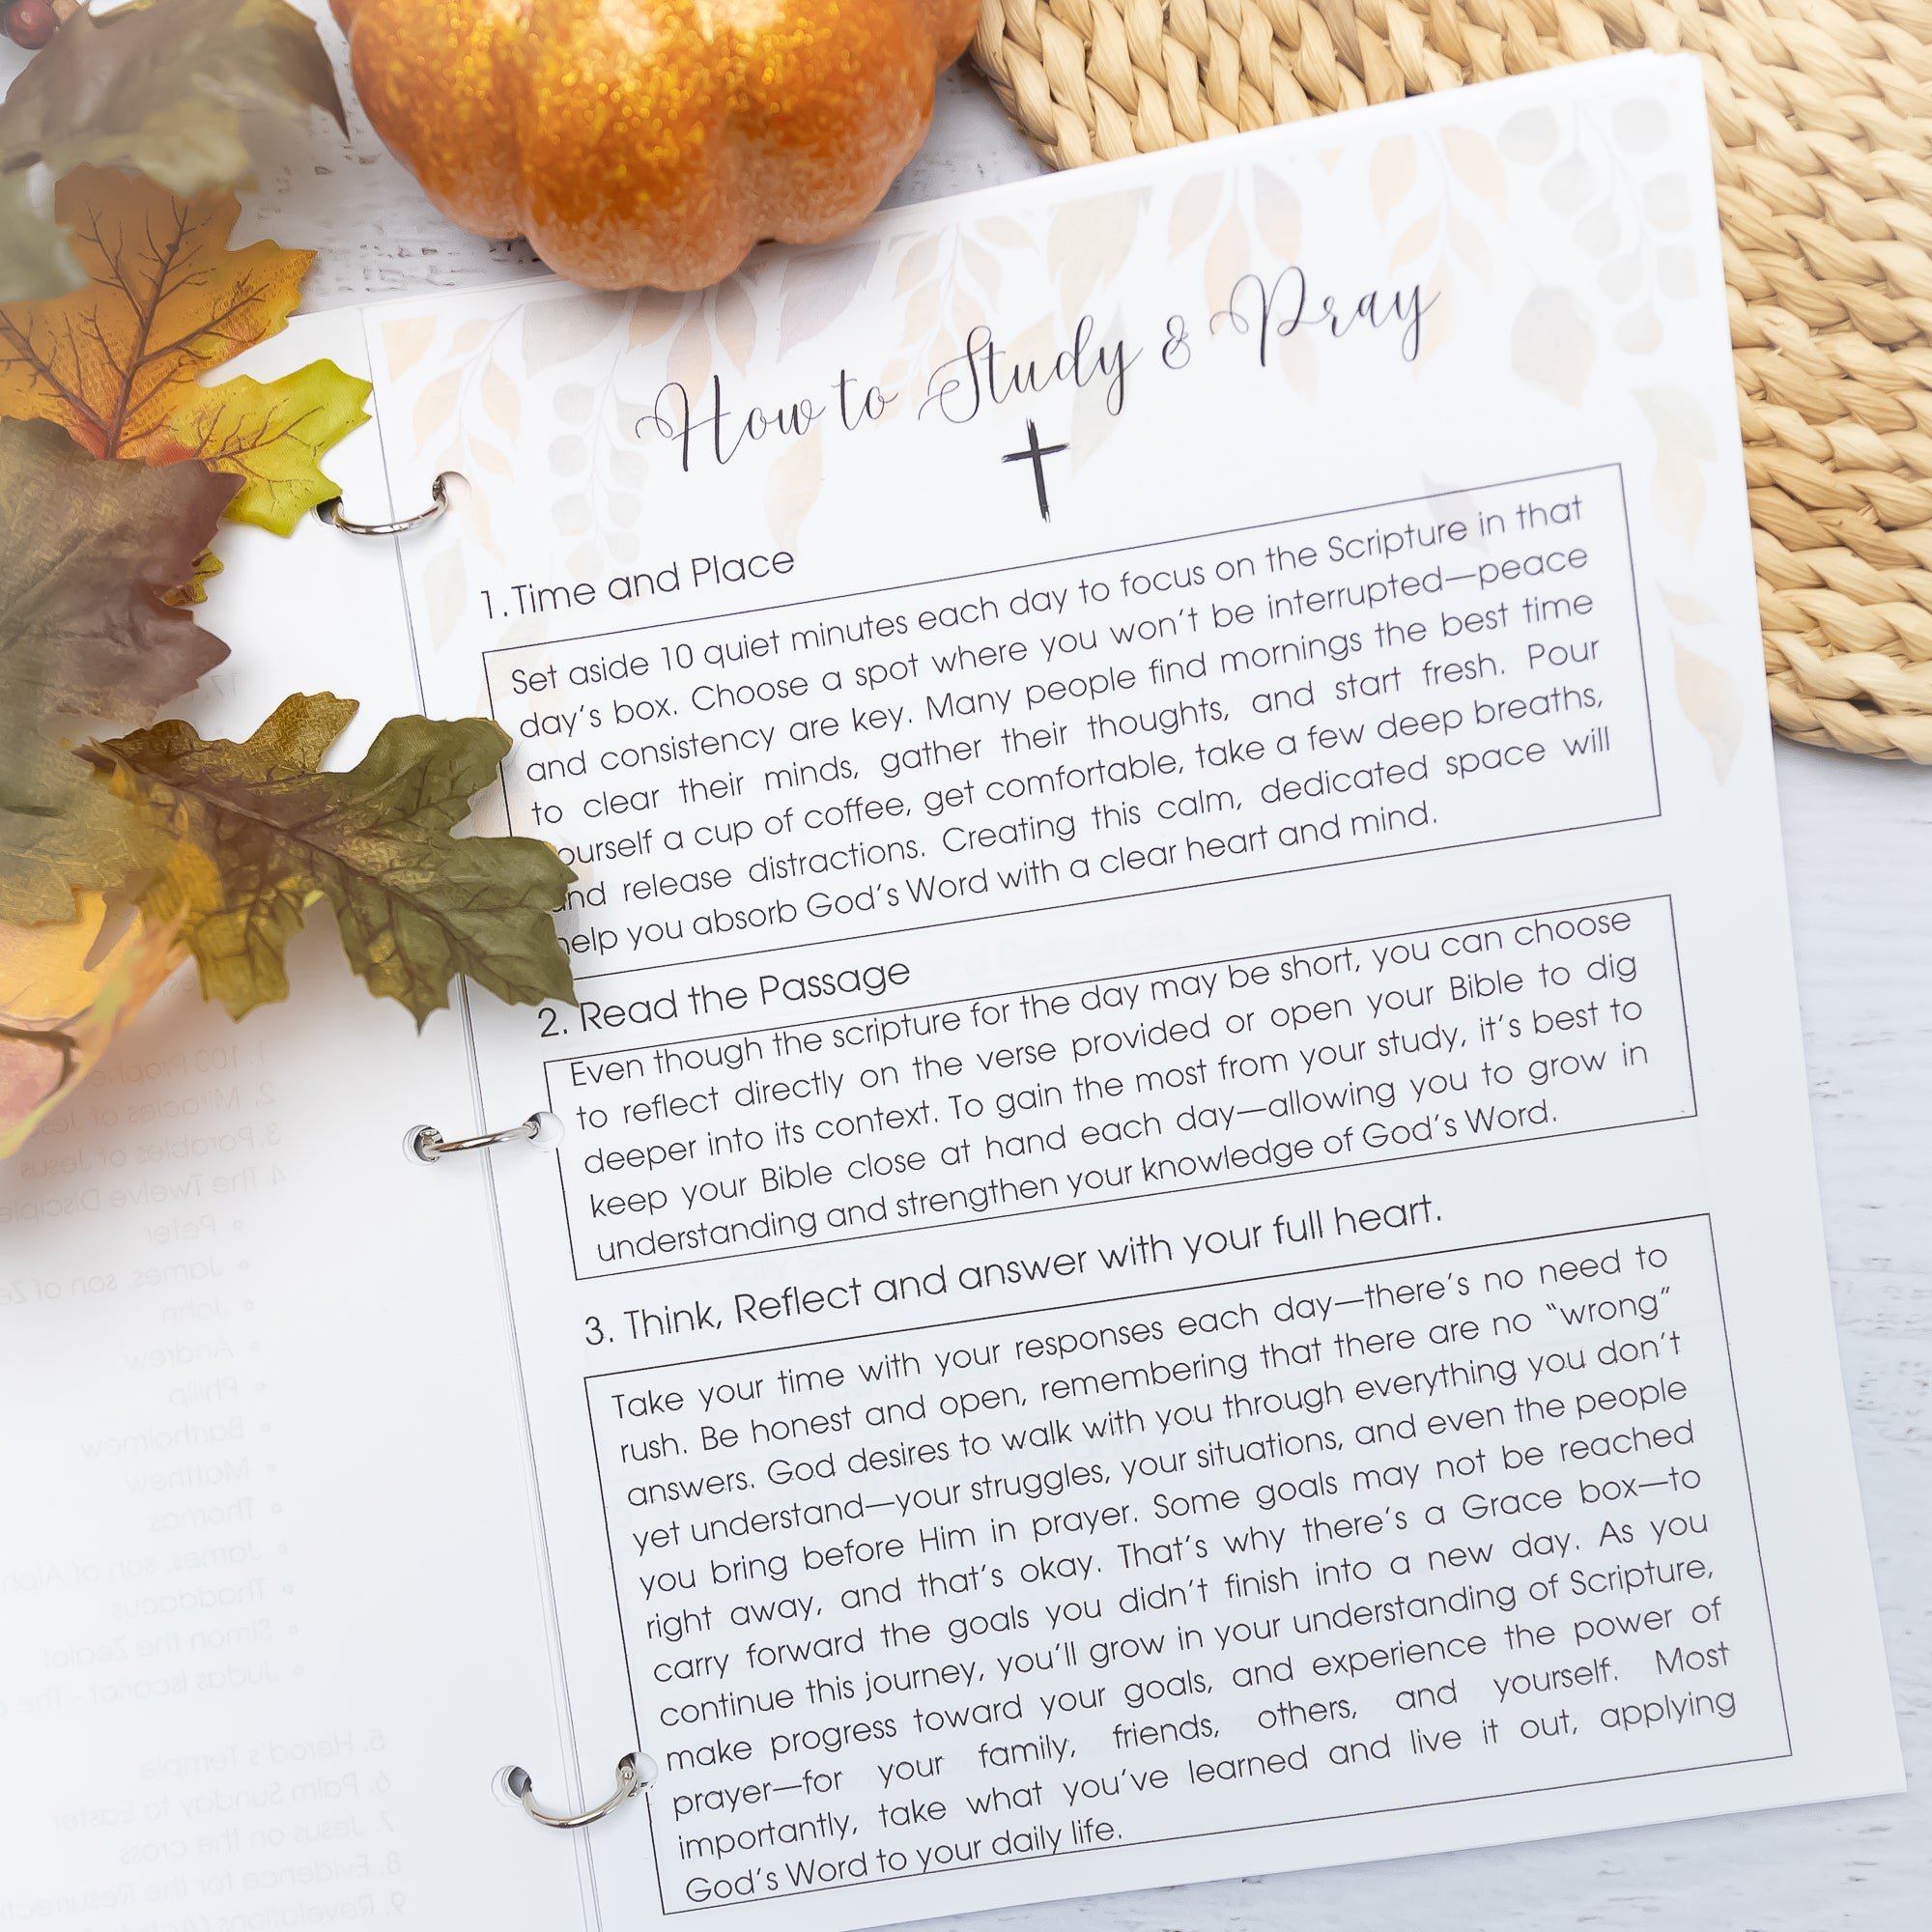 How to Study & Pray
1. Time and Place
Set aside 10 quiet minutes each day to focus on the Scripture in that
day's box. Choose a spot where you won't be interrupted—peace
and consistency are key. Many people find mornings the best time
to clear their minds, gather their thoughts, and start fresh. Pour
ourself a cup of coffee, get comfortable, take a few deep breaths,
nd release distractions. Creating this calm, dedicated space will
help you absorb God's Word with a clear heart and mind.
2. Read the Passage
Even though the scripture for the day may be short, you can choose
to reflect directly on the verse provided or open your Bible to dig
deeper into its context. To gain the most from your study, it's best to
keep your Bible close at hand each day—allowing you to grow in
understanding and strengthen your knowledge of God's Word.
3. Think, Reflect and answer with your full heart.
Take your time with your responses each day—there's no need to
rush. Be honest and open, remembering that there are no "wrong"
answers. God desires to walk with you through everything you don't
yet understand—your struggles, your situations, and even the people
you bring before Him in prayer. Some goals may not be reached
right away, and that's okay. That's why there's a Grace box—to
carry forward the goals you didn't finish into a new day. As you
continue this journey, you'll grow in your understanding of Scripture,
make progress toward your goals, and experience the power of
prayer—for your family, friends, others, and yourself. Most
importantly, take what you've learned and live it out, applying
God's Word to your daily life.
2. Miracles of Jes
3. Parables of Jesus
4. The Twelve Disciple
Peter
James, son of Ze
John
Andrew
Philip
Matthew
Thomas
James, son of Alph
Thaddaeus
Simon the Zealot
Judas Iscariot - The
5. Herod's Temple
6. Palm Sunday to Easter
7. Jesus on the cross
8. Evidence for the Resurrec